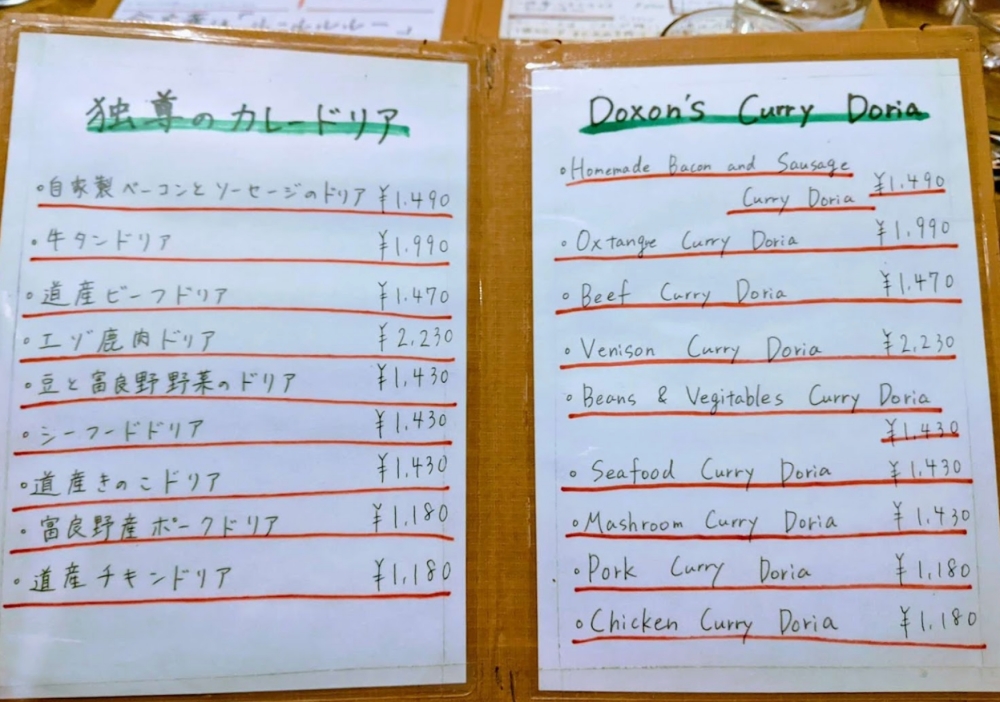 独尊のカレードリア
・自家製ベーコンとソーセージのドリア ¥1,490
・牛タンドリア ¥1,990
・道産ビーフドリア ¥1,470
・エゾ鹿肉ドリア ¥2,230
・豆と富良野野菜のドリア ¥1,430
・シーフードドリア ¥1,430
・道産きのこドリア ¥1,430
・富良野産ポークドリア ¥1,180
・道産チキンドリア ¥1,180
Doxon's Curry Doria
・Homemade Bacon and Sausage
Curry Doria ¥1,490
・Oxtangue Curry Doria ¥1,990
・Beef Curry Doria ¥1,470
・Venison Curry Doria ¥2,230
・Beans & Vegitables Curry Doria
¥1,430
・Seafood Curry Doria ¥1,430
・Mashroom Curry Doria ¥1,430
・Pork Curry Doria ¥1,180
・Chicken Curry Doria ¥1,180